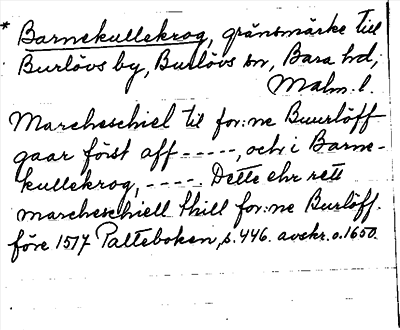 * Barnekullekrog, gränsmärke till
Burlövs by, Burlövs sn, Bara hd,
Malm. l.
Marcheschiel til for:ne Buurlöff
gaar först aff -----, och i Barne-
kullekrog, ----- Dette ehr rett
marcheschiell thill for:ne Burlöff.
före 1517 Palteboken, s. 446. avskr. o. 1650.